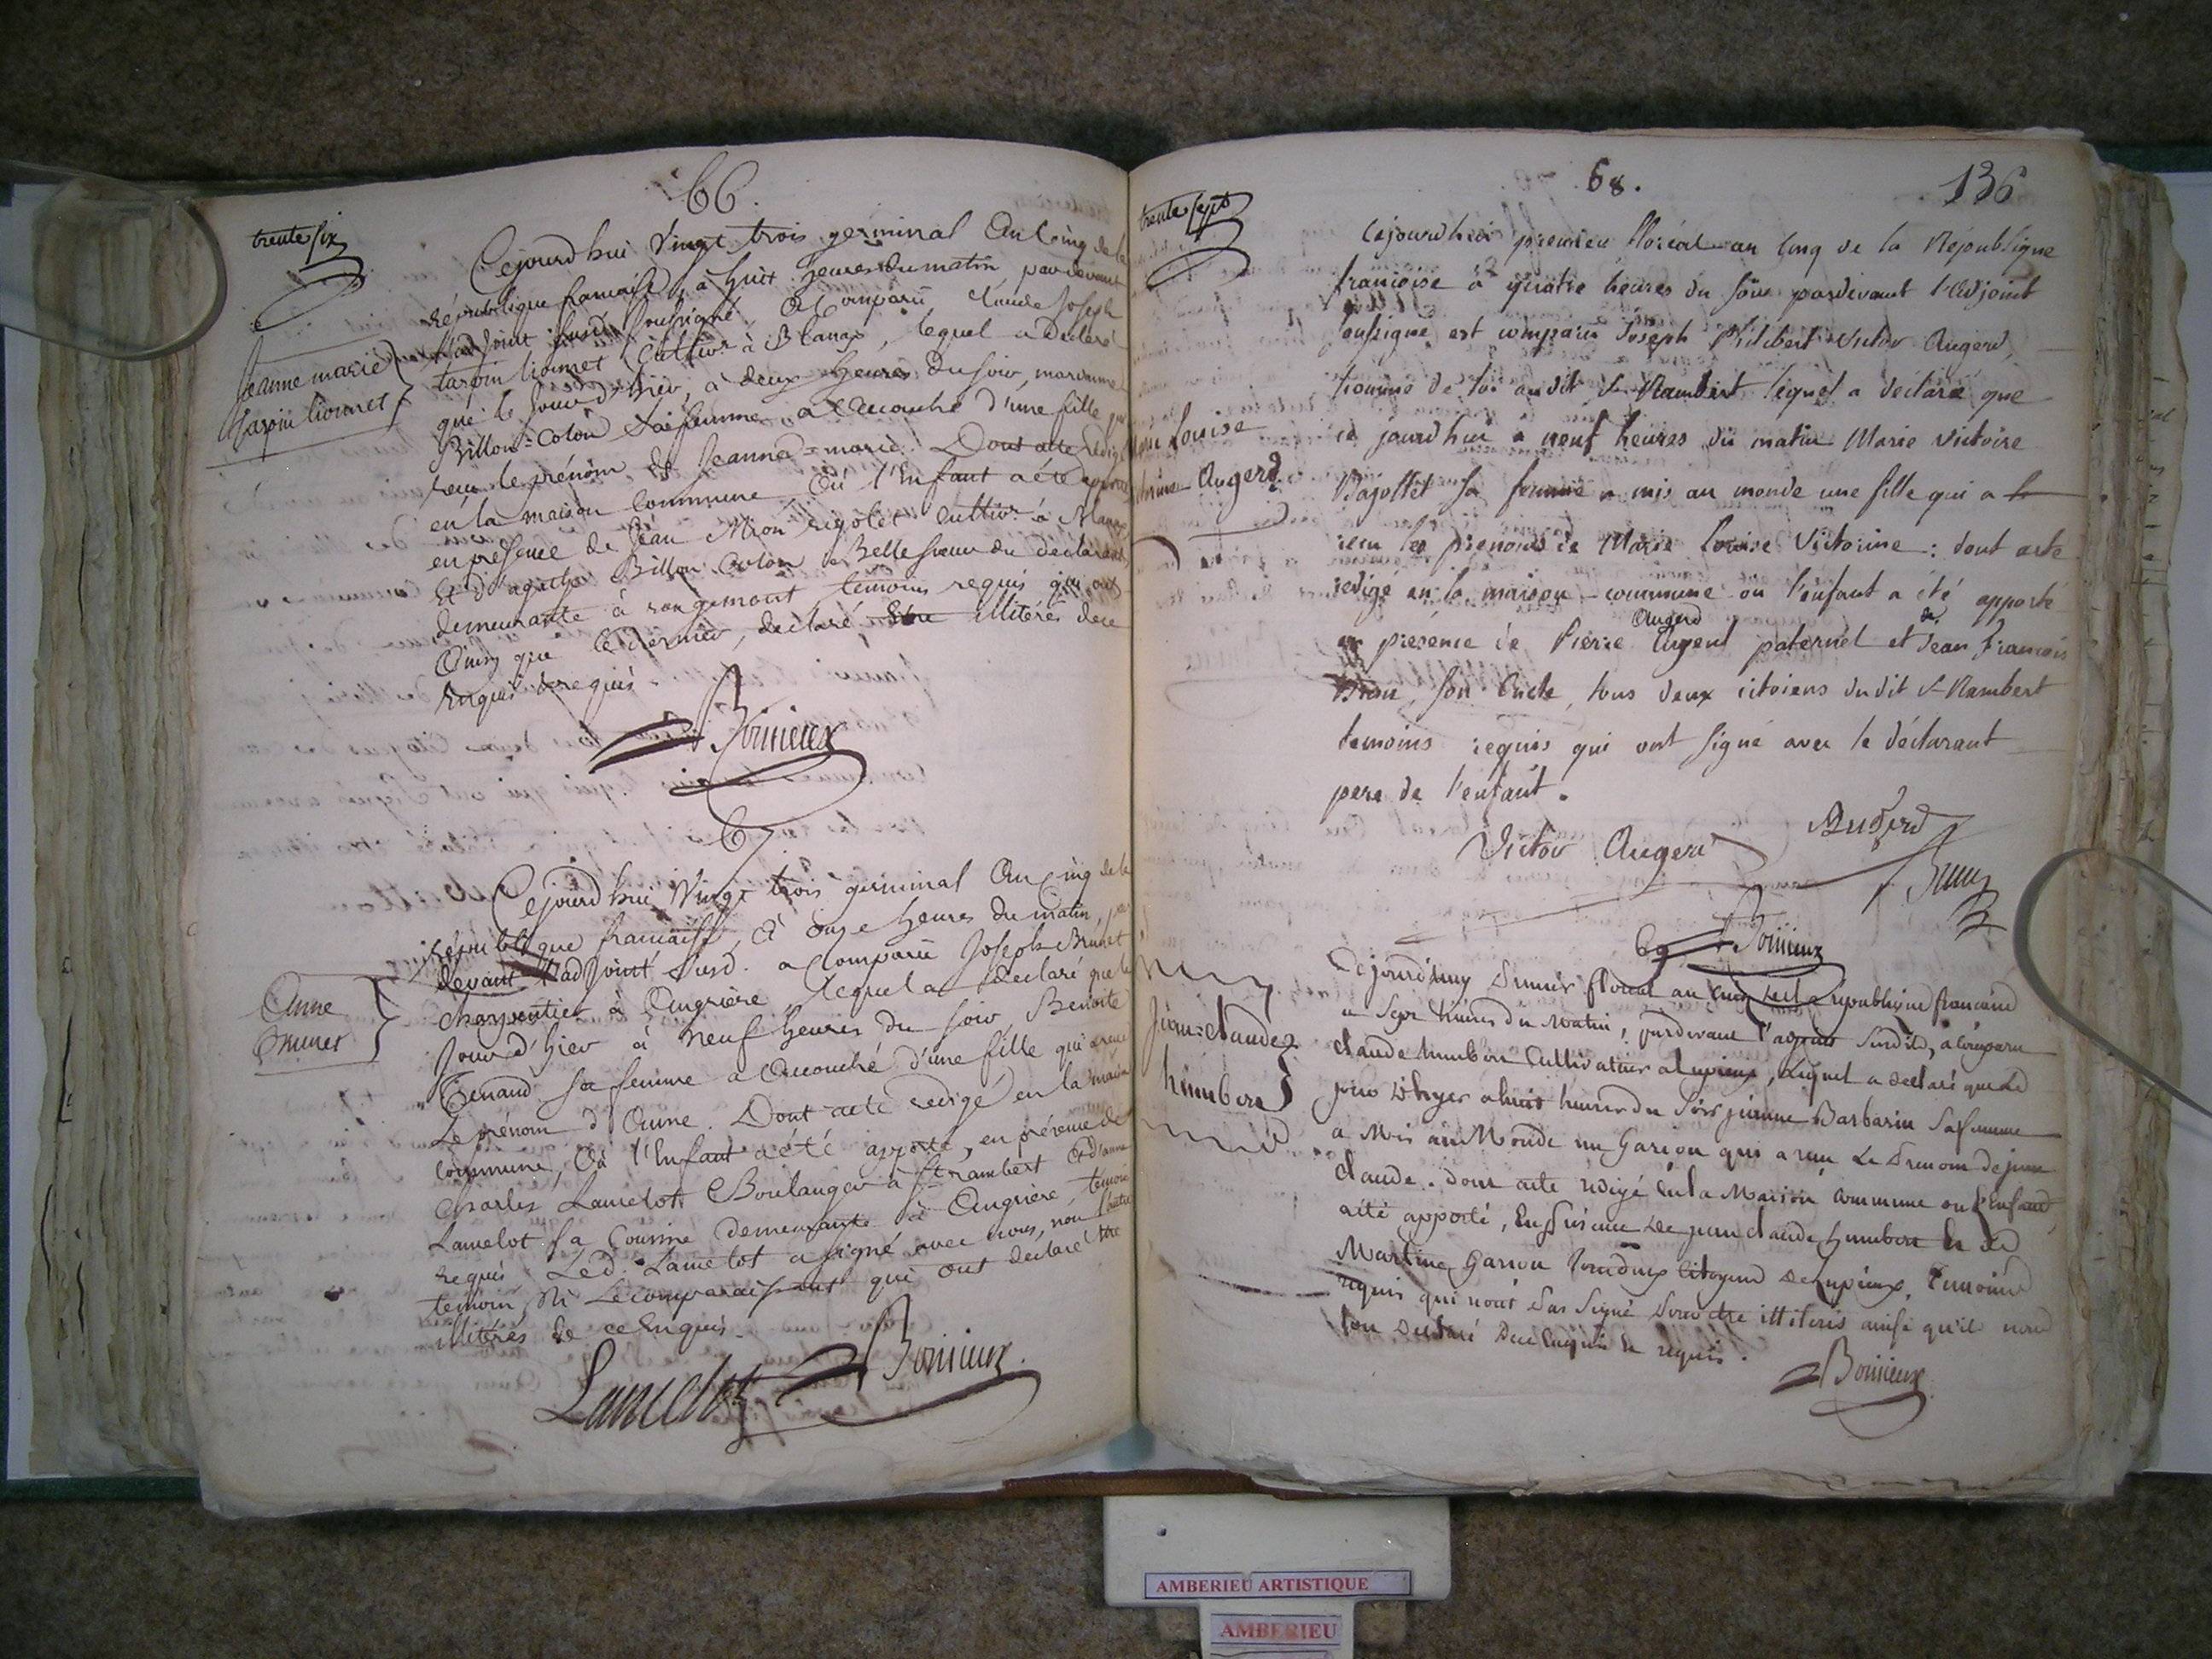 66.
trente six
Jeanne marie
tarpin lionnet
Cejourd'hui Vingt trois germinal An Cinq de la
république française, à huit heures du matin par devant
l'adjoint susd. soussigné a Comparu Claude Joseph
tarpin lionnet Cultivr. à Blanaz, lequel a Déclaré
que le jour d'hier, à deux heures du soir,
Billon-Colon sa femme a accouché d'une fille qui
recu le prénom de Jeanne=marie. Dont acte rédigé
en la maison Commune où l'Enfant a été apporté
en présence de Jean Mion rigolet cultivr. à Blanaz
Et d'agathe Billon Colon Belle soeur du déclarant
demeurante à rougemont témoins requis qui ont
Ainsy que le dernier, déclaré Etre illitérés de ce
Enquis & requis
Bonieux
67.
Anne
Brunet
Cejourd'hui Vingt trois germinal An Cinq de la
République française, à onze heures du matin, par
devant l'adjoint susd. a Comparu Joseph Brunet
charpentier à Angrière, lequel a déclaré que le
Jour d'hier à neuf heures du soir Benoite
Tenand sa femme a Accouché d'une fille qui a recu
Le prénom d'Anne. Dont acte redigé en la maison
commune, où l'Enfant a été apporté, en présence de
Charles Lamelot Boulanger à St. rambert et d'anne
Lamelot sa Cousine demeurante à Angrière, temoins
requis Led. Lamelot a signé avec nous, non l'autre
temoin, Ni Le comparaissant qui ont declaré être
illitérés de ce Enquis.
Lamelot Bonieux
68. 136
trente sept
Marie Louise
Victorine Augerd
Cejourd'hui premier floréal an cinq de la République
françoise à quatre heures du soir pardevant l'adjoint
soussigné est comparu Joseph Philibert Victor Augerd,
homme de loi audit St Rambert lequel a déclaré que
ce jourd'hui à neuf heures du matin Marie Victoire
Bagollet sa femme a mis au monde une fille qui a
recu les prenoms de Marie Louise Victorine : dont acte
redigé en la maison commune où l'enfant a été apporté
Augerd de
en présence de Pierre Augerd paternel et Jean François
Brun, son oncle, tous deux citoiens dudit St Rambert
temoins requis qui ont signé avec le déclarant
pere de l'enfant.
Victor Augerd Augerd
Brun
Bonieux
69
Jean-claude
humbert
Cejourd'huy premier floreal an cinq de la republique francaise
a sept heures du Matin, pardevant l'adjoint susdit, a Comparu
claude humbert Cultivateur a Lupieux, Lequel a declaré que Le
jour d'hyer a huit heures du soir jeanne Barbarin sa femme
a Mis au Monde un Garcon qui a recu Le prenom de jean
claude. dont acte redigé en la Maison commune ou l'Enfant
a été apporté, En presence de jean claude humbert Et de
Martine Garron tous deux Citoyens de Lupieux, Temoins
requis qui n'ont pas signé pour être illiterés ainsi qu'il nous
l'on declaré de ce enquis et requis.
Bonieux
AMBERIEU ARTISTIQUE
AMBERIEU